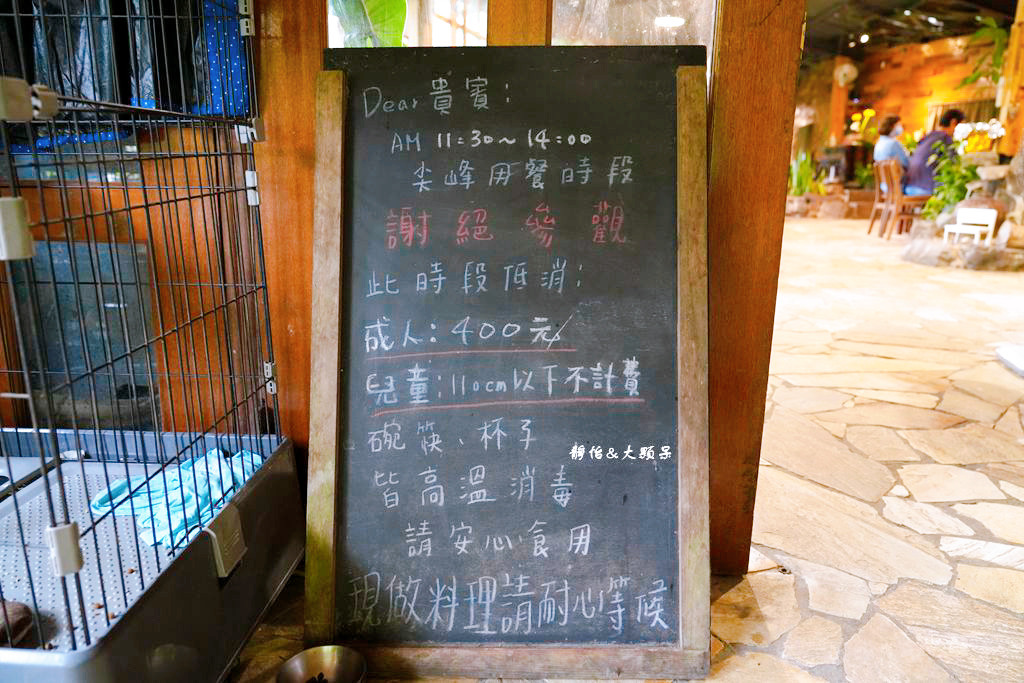 Dear 貴賓：
AM 11:30~14:00
尖峰用餐時段
謝絕參觀
此時段低消：
成人：400元/
兒童：110cm以下不計費
碗筷、杯子
靜怡&大顆呆
皆高溫消毒
請安心食用
現做料理請耐心等候